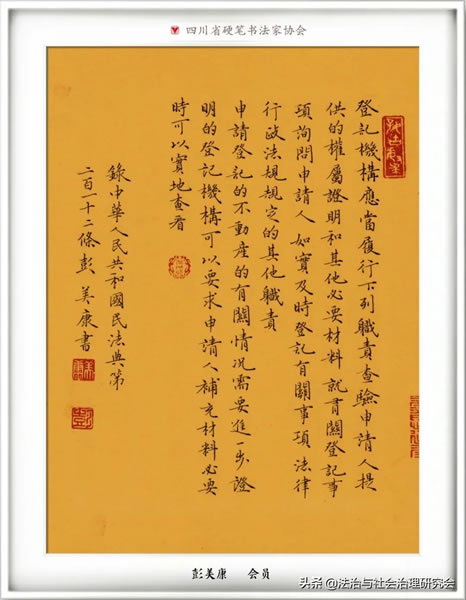 四川省硬笔书法家协会
登記機構應當履行下列職責查驗申請人提
供的權屬證明和其他必要材料就有關登記事
項詢問申請人如實及時登記有關事項法律
行政法規規定的其他職責
申請登記的不動産的有關情况需要進一步證
明的登記機構可以要求申請人補充材料必要
時可以實地查看
錄中華人民共和國民法典第
二百一十二條彭美康書
彭美康 会员
头条@法治与社会治理研究会